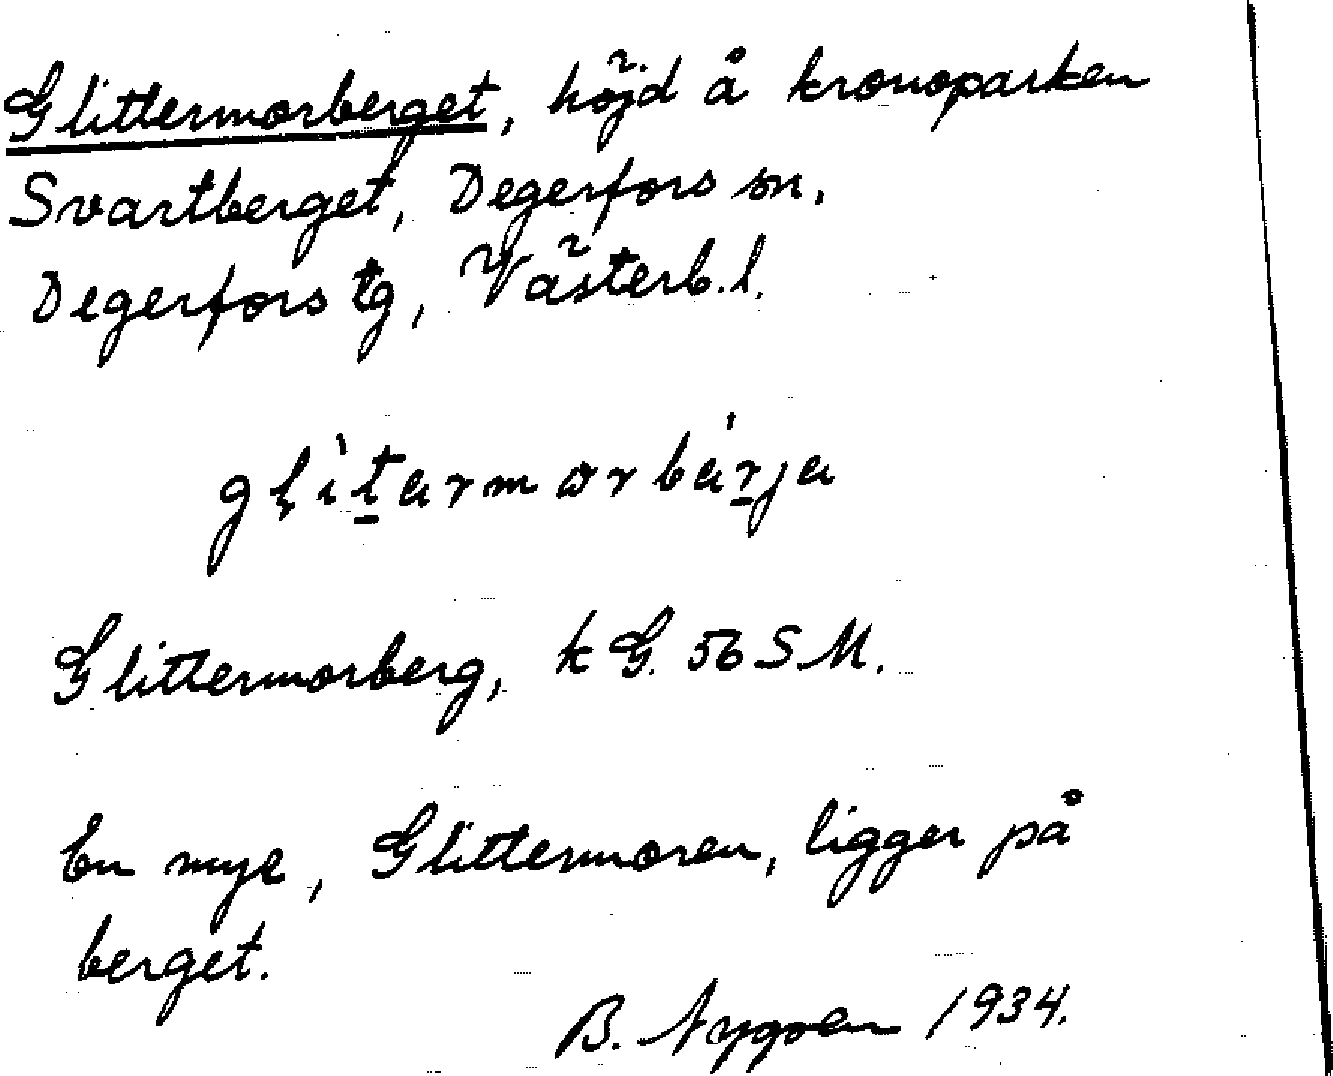 Glittermorberget, höjd å kronoparken
Svartberget, Degerfors sn,
Degerfors tg, Västerb.l.
glìtarmorbárja
Glittermorberg, k G. 56 SM.
En myr, Glittermoren, ligger på
berget.
B. Nygren 1934.